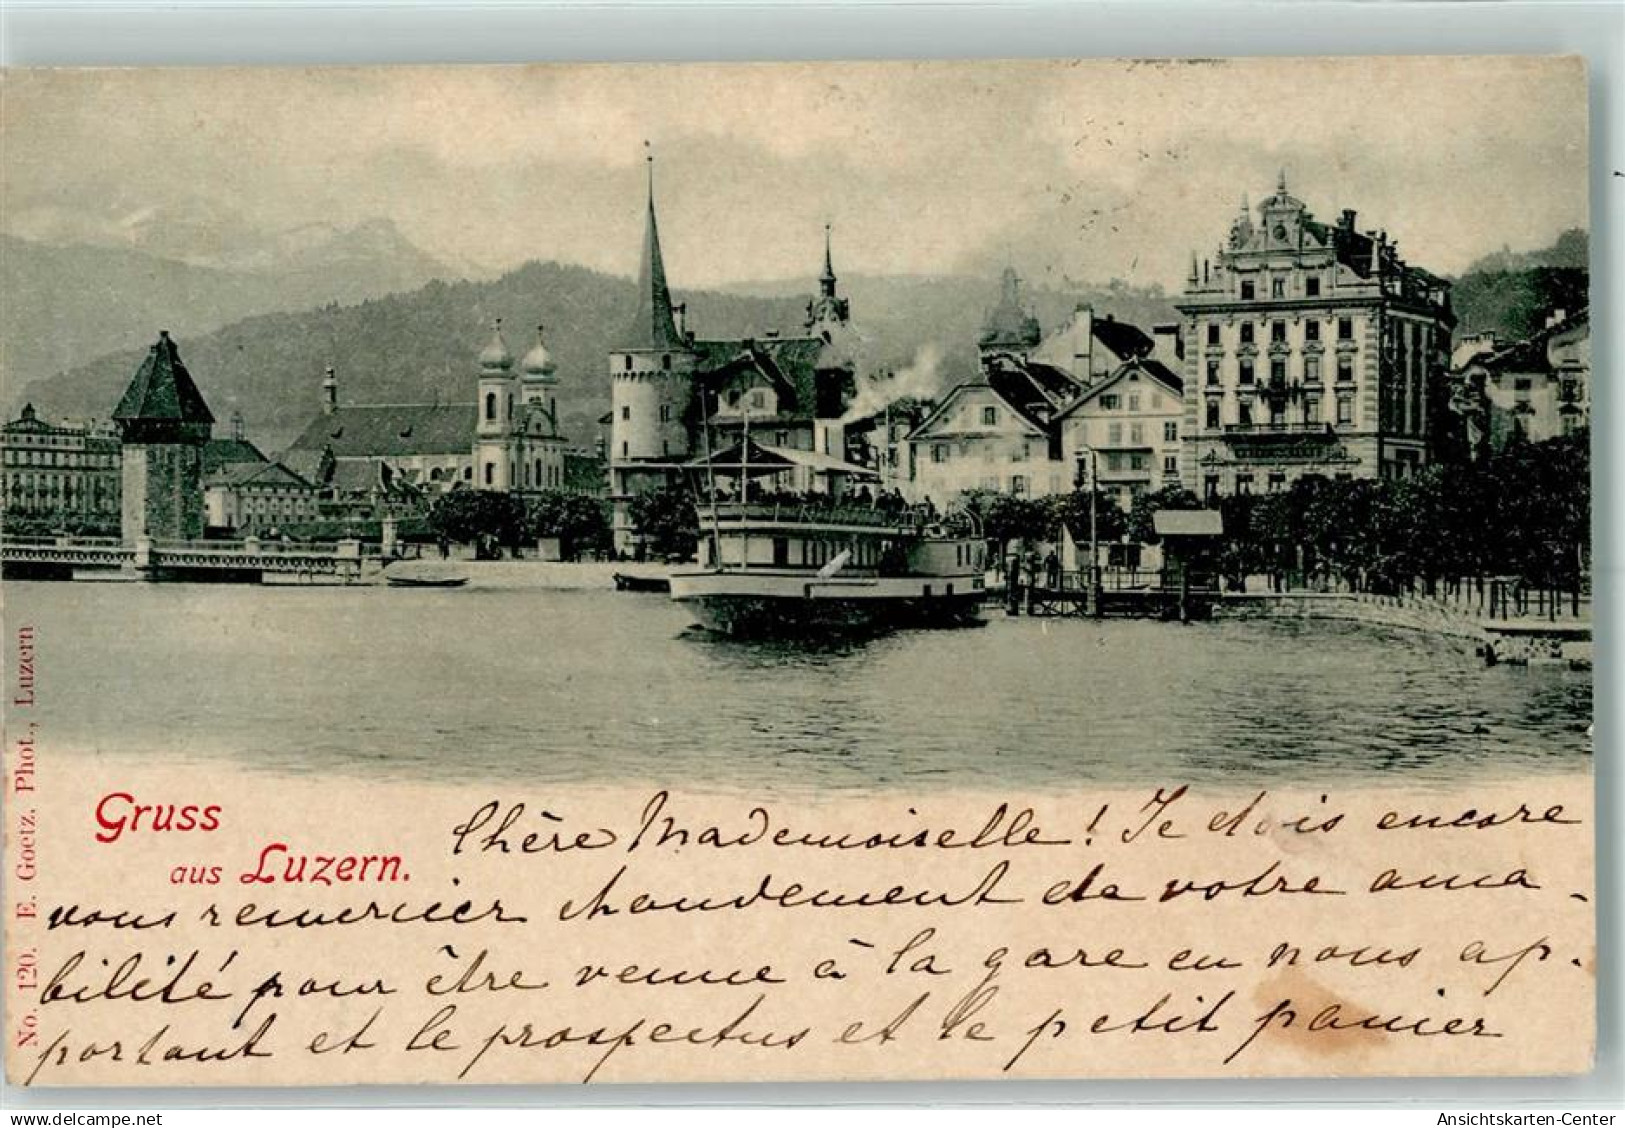 Gruss
aus Luzern.
Chère Mademoiselle! Je dois encore
vous remercier chaudement de votre ama-
bilité pour être venue à la gare en nous ap-
portant et le prospectus et le petit panier
No. 120. E. Goetz. Phot., Luzern
www.delcampe.net
Ansichtskarten-Center